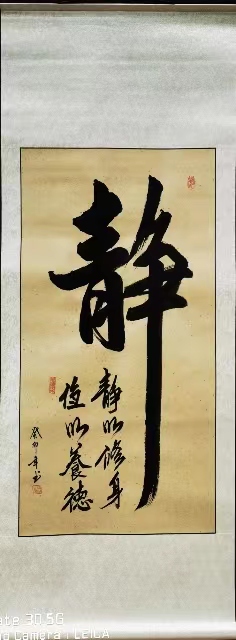 静
静以修身
恆以養德
癸卯年書
ate 30 5G
Camera | LEICA